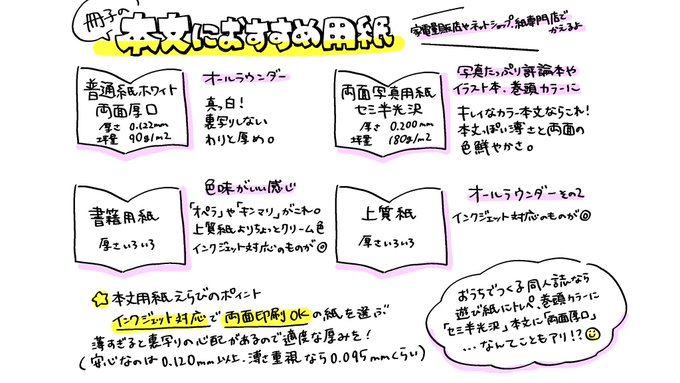 冊子の
本文におすすめ用紙
家電量販店やネットショップ、紙専門店で
かえるよ
普通紙ホワイト
両面厚口
厚さ 0.122mm
坪量 90g/m2
オールラウンダー
真っ白!
裏写りしない
わりと厚め。
両面写真用紙
セミ半光沢
厚さ 0.200mm
坪量 180g/m2
写真たっぷり評論本や
イラスト本、巻頭カラーに
キレイなカラー本文ならこれ!
本文っぽい薄さと両面の
色鮮やかさ。
書籍用紙
厚さいろいろ
色味がいい感じ
「オペラ」や「キンマリ」がこれ。
上質紙よりちょっとクリーム色
インクジェット対応のものが◎
上質紙
厚さいろいろ
オールラウンダーその2
インクジェット対応のものが◎
☆本文用紙えらびのポイント
インクジェット対応で両面印刷OKの紙を選ぶ
薄すぎると裏写りの心配があるので適度な厚みを!
(安心なのは0.120mm以上、薄さ重視なら0.095mmくらい)
おうちでつくる同人誌なら
遊び紙にトレペ、巻頭カラーに
「セミ半光沢」本文に「両面厚口」
…なんてこともアリ!?